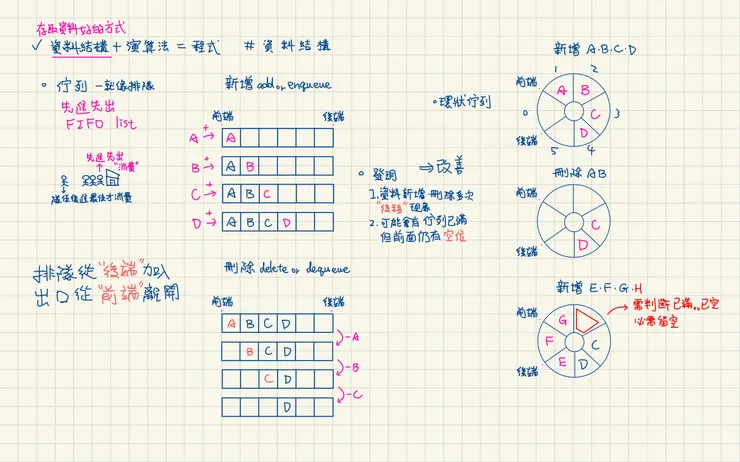 存取資料好的方式
✓ 資料結構 + 演算法 = 程式 # 資料結構
。佇列 – 就像排隊
先進先出
FIFO list
先進先出
"消費"
隊伍後進最後才消費
排隊從"後端"加入
出口從"前端"離開
新增 add or enqueue
前端 後端
A + → A
B + → A B
C + → A B C
D + → A B C D
刪除 delete or dequeue
前端 後端
A B C D
-A
B C D
-B
C D
-C
D
。發現 ⇒ 改善
1. 資料新增、刪除多次
"後移"現象
2. 可能會有佇列已滿
但前面仍有空位
。環狀佇列
新增 A.B.C.D
前端
後端
0 1 2 3 4 5
A B C D
刪除 AB
前端
後端
C D
新增 E.F.G.H
前端
後端
G F E D C
需判斷已滿、已空
必需留空